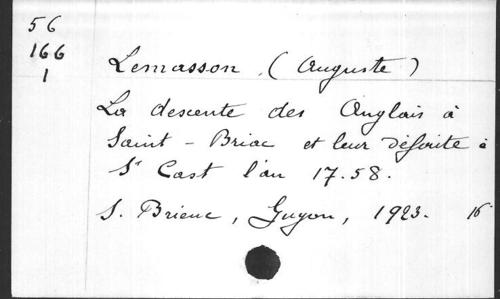 56
166
1
Lemasson (Auguste)
La descente des Anglais à
Saint-Briac et leur défaite à
St Cast l'an 17.58.
S. Brieuc, Guyon, 1923. 16°